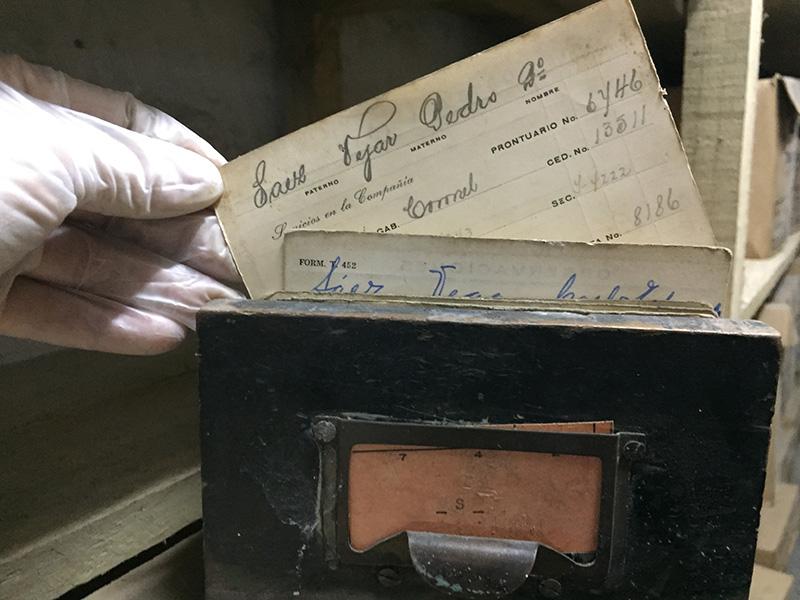 Saez Vejar Pedro 2º
PATERNO MATERNO NOMBRE
PRONTUARIO No. 6746
Servicios en la Compañia
CED. No. 13511
GAB. Coronel
SEC.
No. 8186
FORM. 452
Sáez Vega
7 4
- S -